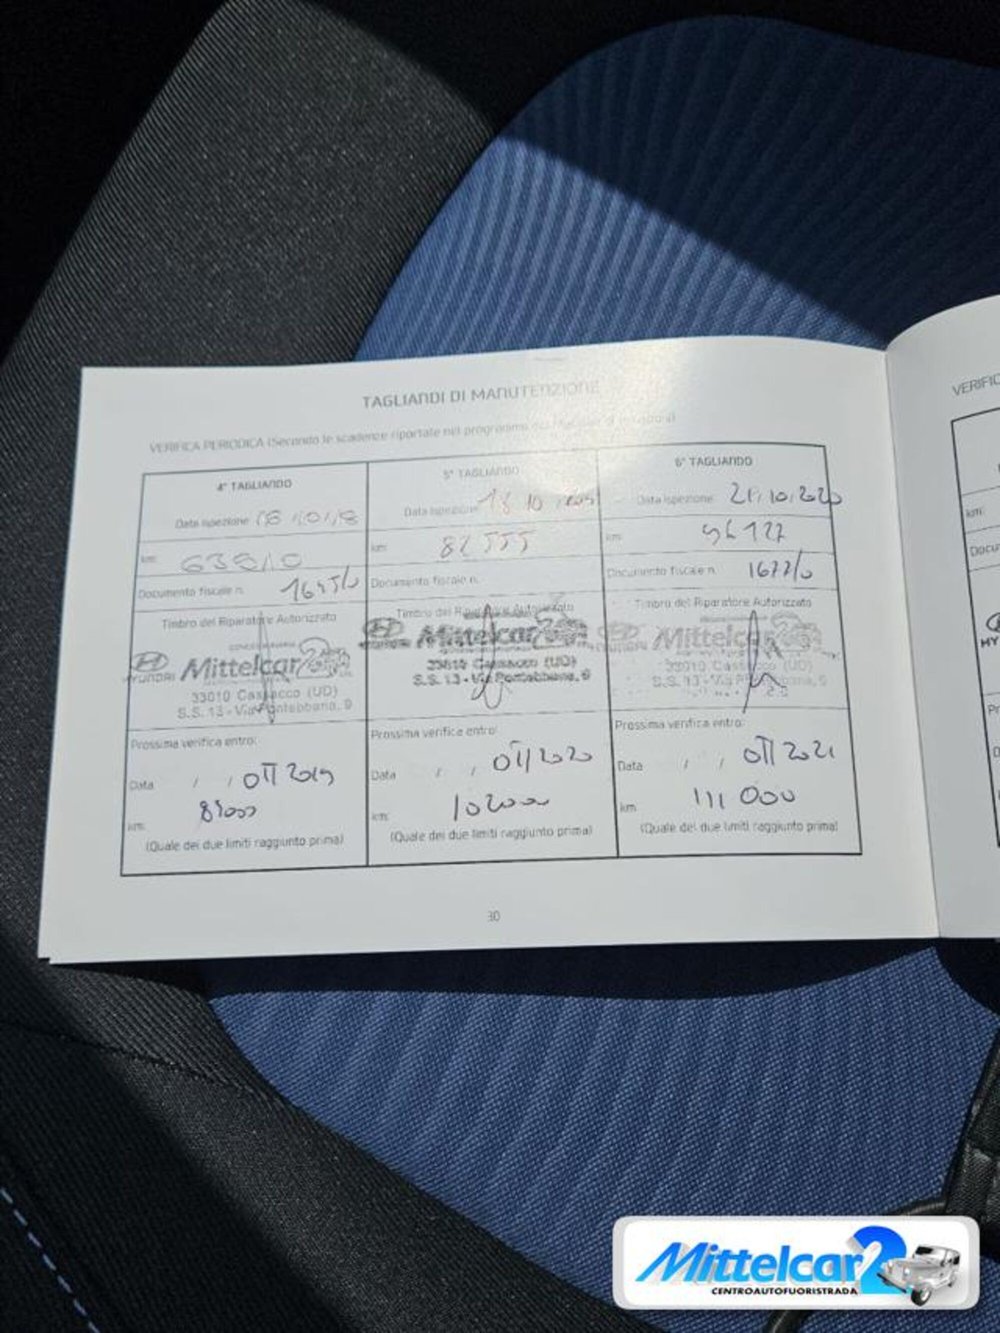 TAGLIANDI DI MANUTENZIONE
VERIFICA PERIODICA (Secondo le scadenze riportate nel programma
4° TAGLIANDO
Data ispezione
km:
Documento fiscale n.
Timbro del Riparatore Autorizzato
HYUNDAI Mittelcar
33010 Cassacco (UD)
S.S. 13 - Via Pontebbana, 9
Prossima verifica entro:
Data / / OTT 2019
km:
(Quale dei due limiti raggiunto prima)
5° TAGLIANDO
Data ispezione 18 10
km: 82555
Documento fiscale n.
Timbro del Riparatore Autorizzato
Mittelcar
33010 Cassacco (UD)
S.S. 13 - Via Pontebbana, 9
Prossima verifica entro:
Data / / OTT 2020
km: 102000
(Quale dei due limiti raggiunto prima)
6° TAGLIANDO
Data ispezione 21.10.2020
km: 96127
Documento fiscale n. 1677/0
Timbro del Riparatore Autorizzato
Mittelcar
33010 Cassacco (UD)
S.S. 13 - Via Pontebbana, 9
Prossima verifica entro:
Data / / OTT 2021
km 111 000
(Quale dei due limiti raggiunto prima)
30
km:
Mittelcar2
CENTROAUTOFUORISTRADA